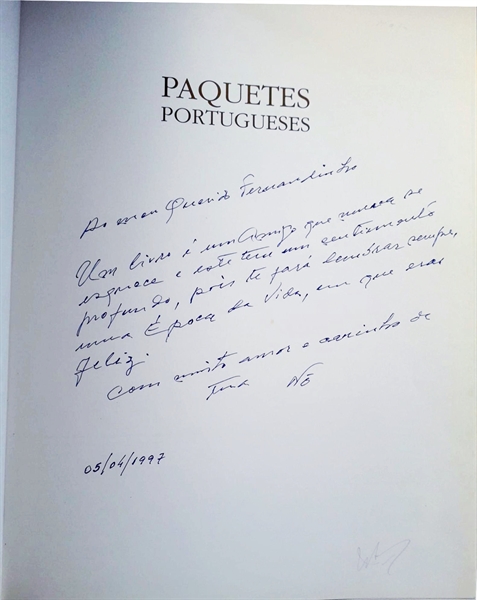 PAQUETES
PORTUGUESES
Ao meu Querido Fernandinho
Um livro é um Amigo que nunca se
esquece e este tem um sentimento
profundo, pois te fará lembrar sempre,
uma Época da Vida, em que eras
feliz.
Com muito amor e carinho de
Tua Nô
05/04/1997